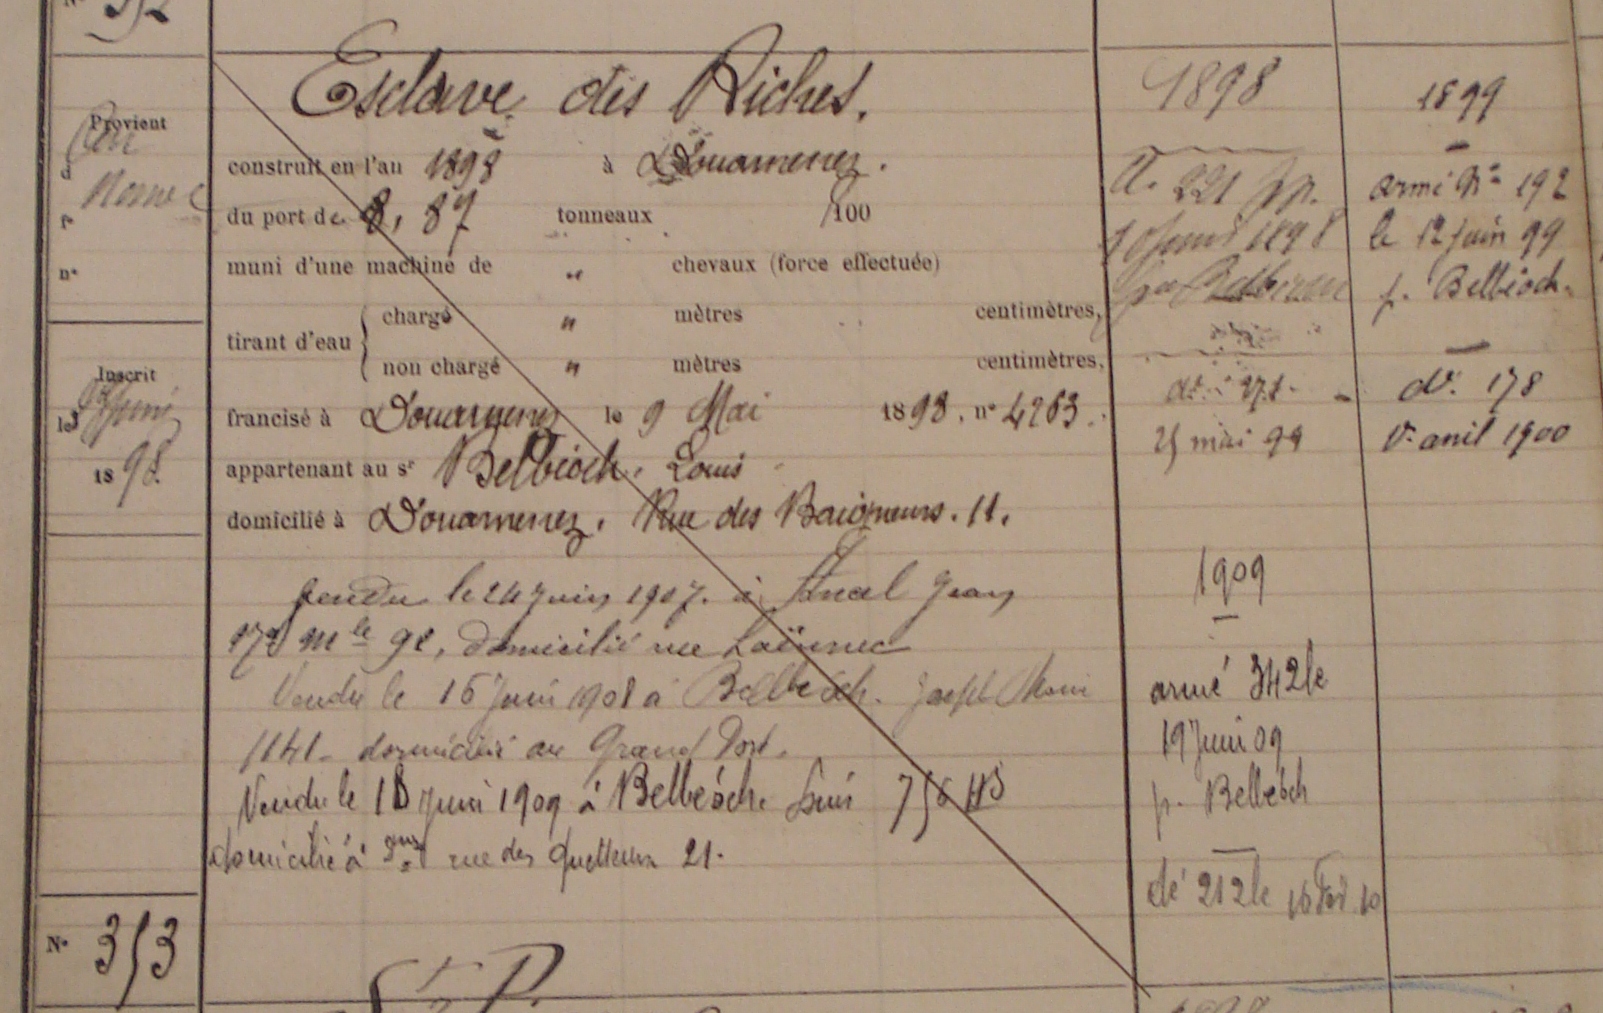 N° 352
Esclave des Riches.
Provient
d
r
n°
construit en l'an 1898 à Douarnenez.
du port de 8, 87 tonneaux /100
muni d'une machine de " chevaux (force effectuée)
tirant d'eau
chargé " mètres centimètres,
non chargé " mètres centimètres,
Inscrit
le Juin
1898.
francisé à Douarnenez le 9 Mai 1898. n° 4263.
appartenant au sr Belbéoch, Louis
domicilié à Douarnenez. Rue des Baigneurs. 11.
Vendu le 24 Juin 1907. à Jean
mle 98, domicilié rue Laënnec
Vendu le 16 Juin 1908 à Belbéoch. Joseph Marie
1141. domicilié au Grand Port.
Vendu le 18 Juin 1909 à Belbéoch. Louis 756 HS
domicilié à Dnz rue des 21.
N° 353
1898
A. 221
Juin 1898
dé. 271.
25 mai 99
1909
armé 342 le
19 Juin 09
p. Belbéoch
dé 212 le 16 10
1899
armé N° 192
le 12 Juin 99
p. Belbéoch.
dé. 178
1r avril 1900